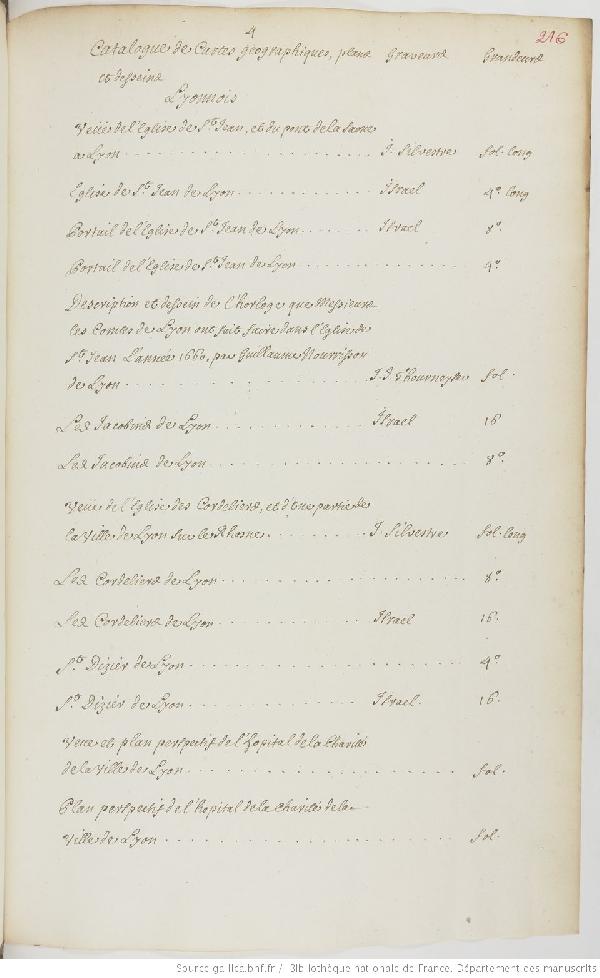 4
216
Catalogue de Cartes géographiques, plans Graveurs Grandeurs
et desseins
Lyonnois
Veüe de l'Eglise de St. Jean, et du pont de la Saone
a Lyon . . . . . . . . . . . . . . . . . . . J. Silvestre fol. long
Eglise de St. Jean de Lyon . . . . . . . . . . Israel 4º. long
Portail de l'Eglise de St. Jean de Lyon . . . . . . Israel 8º.
Portail de l'Eglise de St. Jean de Lyon . . . . . . . . . . . . 4º.
Description et dessein de l'horloge que Messieurs
les Comtes de Lyon ont fait faire dans l'Eglise de
St. Jean L'année 1660, par Guillaume Nourrisson
de Lyon . . . . . . . . . . . . . . . . . . J. J. Thourneysen fol.
Les Jacobins de Lyon . . . . . . . . . . . . Israel 16
Les Jacobins de Lyon . . . . . . . . . . . . . . . . . . 8º.
Veüe de l'Eglise des Cordeliers, et d'une partie de
la Ville de Lyon sur le Rhone . . . . . . . . J. Silvestre fol. long
Les Cordeliers de Lyon . . . . . . . . . . . . . . . . . 8º.
Les Cordeliers de Lyon . . . . . . . . . . . Israel 16.
St. Dizier de Lyon . . . . . . . . . . . . . . . . . . . 4º
St. Dizier de Lyon . . . . . . . . . . . . . Israel. 16.
Veue et plan perspectif de l'hopital de la Charité
de la Ville de Lyon . . . . . . . . . . . . . . . . . . . fol.
Plan perspectif de l'hopital de la Charité de la
Ville de Lyon . . . . . . . . . . . . . . . . . . . . . fol.
Source gallica.bnf.fr / Bibliothèque nationale de France. Département des manuscrits